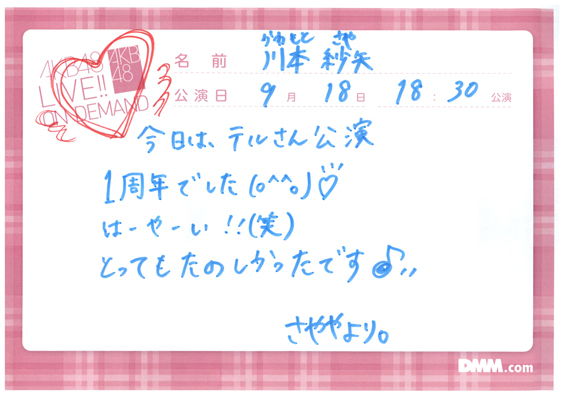 AKB48
LIVE!!
ON DEMAND
AKB
48
かわもと さや
名前 川本 紗矢
公演日 9月 18日 18:30 公演
今日は、テルさん公演
1周年でした(o^^o)♡
はーやーい!!(笑)
とってもたのしかったです♪!!
さややより。
DMM.com